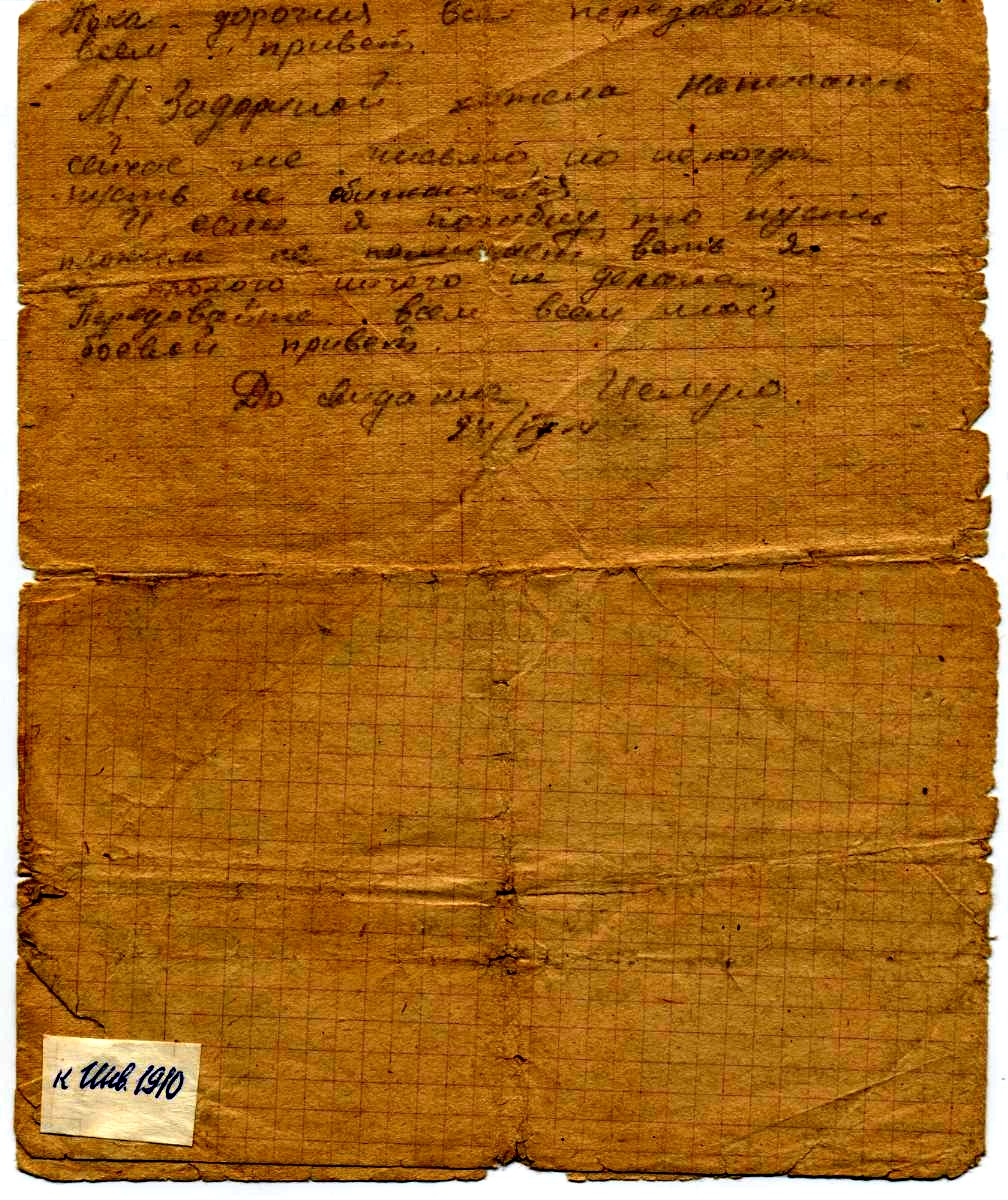 Пока дорогия все передовайте
всем привет.
М. Задорной хотела написать
сейчас же письмо, но некогда
пусть не обижается
И если я погибну, то пусть
плохим не поминает, веть я
плохого ничего не делала.
Передовайте всем всем мой
боевой привет.
До свидания Целую.
24/
к Инв. 1910